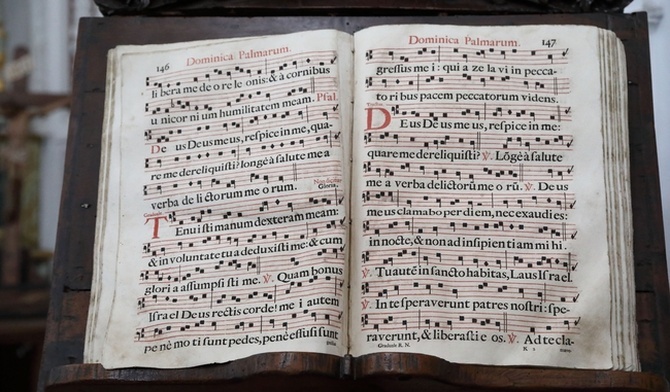 146
Dominica Palmarum.
li bera me de o re le onis: & à cornibus
u nicor ni um humilitatem meam. Psal.
De us Deus meus, respice in me, qua-
re me dereliquisti? longè à salute mea
verba de li ctorum me o rum.
Gloria.
Graduale
Tenui sti manum dexteram meam:
& in voluntate tu a deduxi sti me: & cum
glori a assumpsi sti me. ℣. Quam bonus
Israel Deus rectis corde! me i autem
pe nè mo ti sunt pedes, penè effusi sunt
147
Dominica Palmarum.
gressus me i: qui a ze la vi in pecca-
tori bus pacem peccatorum videns.
Tractus
DEus Deus me us, respice in me:
quare me dereliquisti? ℣. Lōgè à salute
me a verba delictorū me o rū. ℣. De us
me us clamabo per di em, nec exaudi es:
in nocte, & non ad insipien ti am mi hi.
℣. Tu autē in sancto habitas, Laus Israel.
℣. In te speraverunt patres nostri: spe-
raverunt, & liberasti e os. ℣. Ad te cla-
Graduale R. N.